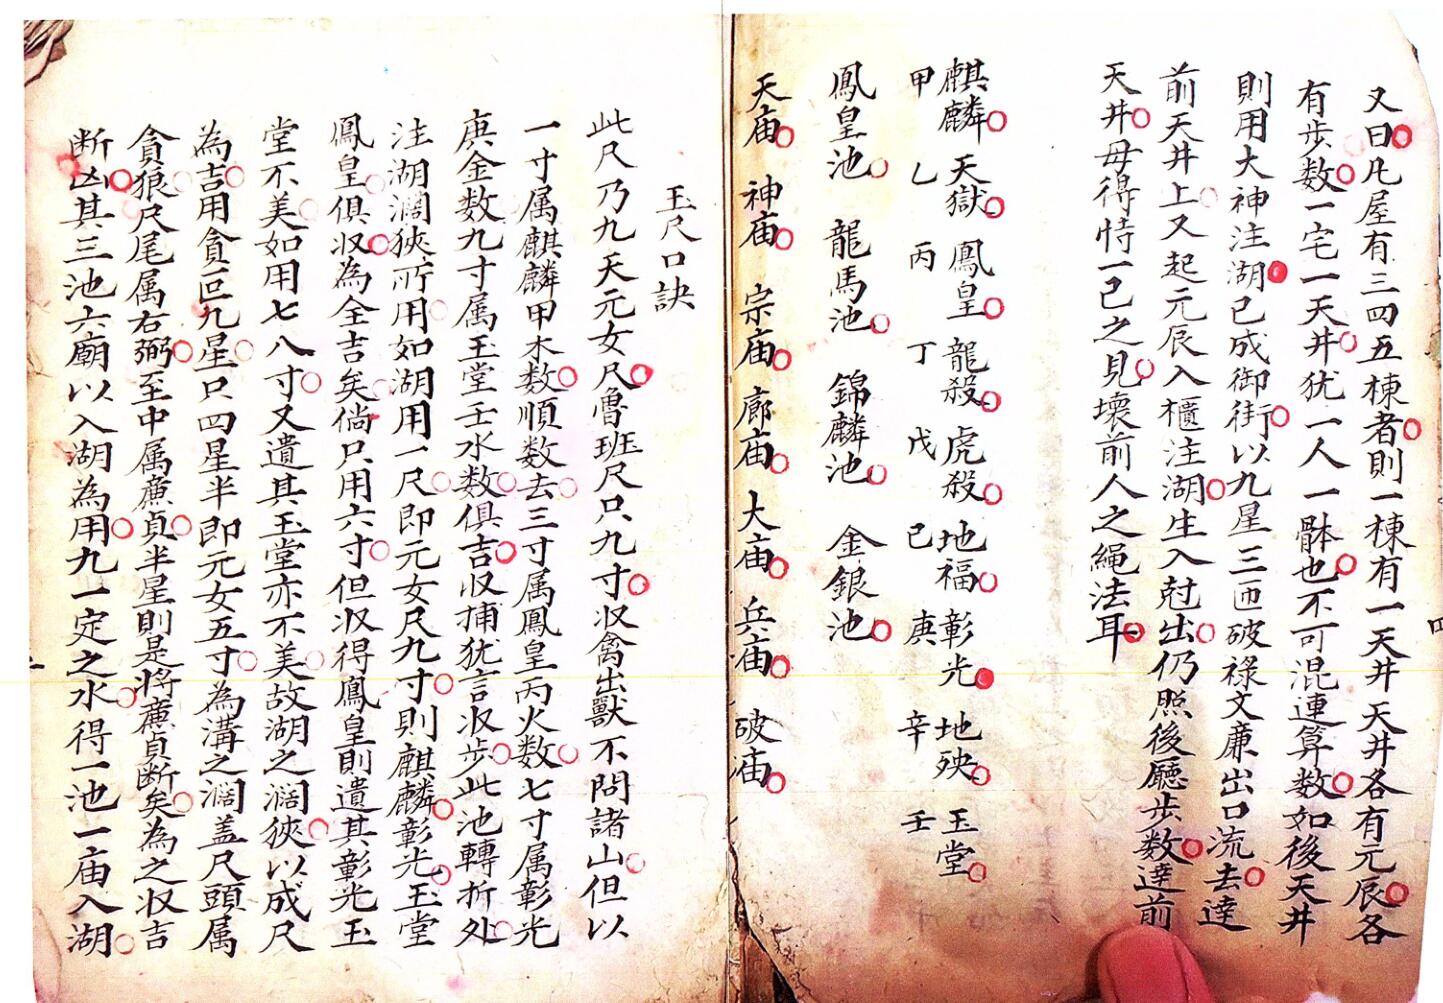 又曰凡屋有三四五棟者則一棟有一天井天井各有元辰各
有步数一宅一天井犹一人一骵也不可混連算数如後天井
則用大神注湖已成御街以九星三匝破祿文亷出口流去達
前天井上又起元辰入櫃注湖生入尅出仍照後廳步数達前
天井毋得恃一己之見壞前人之繩法耳
麒麟 天獄 鳳皇 龍殺 虎殺 地福 彰光 地殃 玉堂
甲 乙 丙 丁 戊 己 庚 辛 壬
鳳皇池 龍馬池 錦麟池 金銀池
天庙 神庙 宗庙 廊庙 大庙 兵庙 破庙
玉尺口訣
此尺乃九天元女尺魯班尺只九寸収禽出獸不問諸山但以
一寸属麒麟甲木数順数去三寸属鳳皇丙火数七寸属彰光
庚金数九寸属玉堂壬水数俱吉収捕犹言収步此池轉折外
注湖濶狹所用如湖用一尺即元女尺九寸則麒麟彰光玉堂
鳳皇俱収為全吉矣倘只用六寸但収得鳳皇則遺其彰光玉
堂不美如用七八寸又遺其玉堂亦不美故湖之濶狹以成尺
為吉用貪巨九星只四星半即元女五寸為溝之濶盖尺頭属
貪狼尺尾属右弼至中属亷貞半星則是将亷貞断矣為之収吉
断凶其三池六廟以入湖為用九一定之水得一池一庙入湖
四